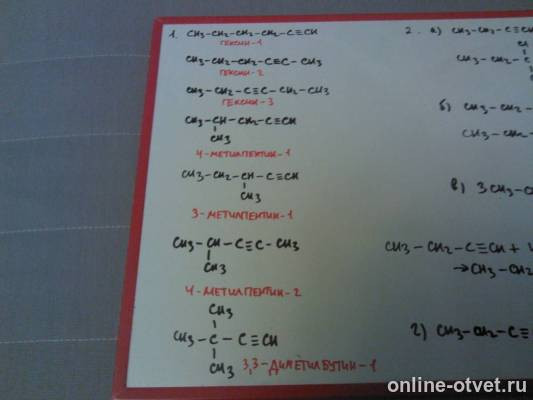 1. CH3-CH2-CH2-CH2-C≡CH
ГЕКСИН-1
CH3-CH2-CH2-C≡C-CH3
ГЕКСИН-2
CH3-CH2-C≡C-CH2-CH3
ГЕКСИН-3
CH3-CH-CH2-C≡CH
CH3
4-МЕТИЛПЕНТИН-1
CH3-CH2-CH-C≡CH
CH3
3-МЕТИЛПЕНТИН-1
CH3-CH-C≡C-CH3
CH3
4-МЕТИЛПЕНТИН-2
CH3
CH3-C-C≡CH
CH3
3,3-ДИМЕТИЛБУТИН-1
2. а) CH3-CH2-C≡CH
CH3-CH2-C
б) CH3-CH2-
CH3-CH2-
в) 3CH3-
CH3-CH2-C≡CH +
→CH3-CH2
г) CH3-CH2-C≡
online-otvet.ru